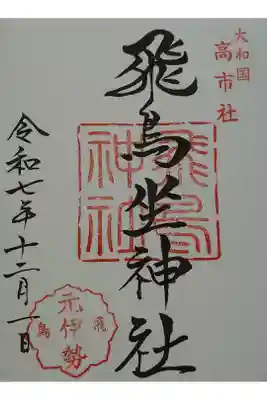 大和国
高市社
飛鳥坐神社
飛鳥
神社
元伊勢
飛鳥
令和七年十二月一日